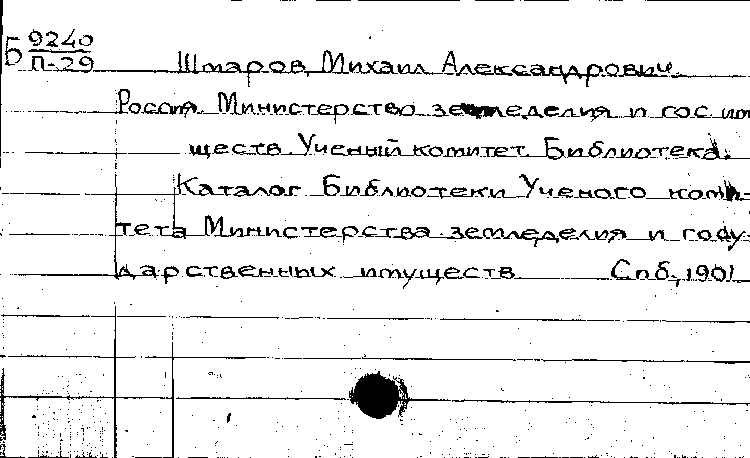 Б 9240
П-29
Шмаров, Михаил Александрович.
Россия. Министерство земледелия и гос. им
ществ. Ученый комитет. Библиотека.
Каталог Библиотеки Ученого коми-
тета Министерства земледелия и госу-
дарственных имуществ. Спб., 1901